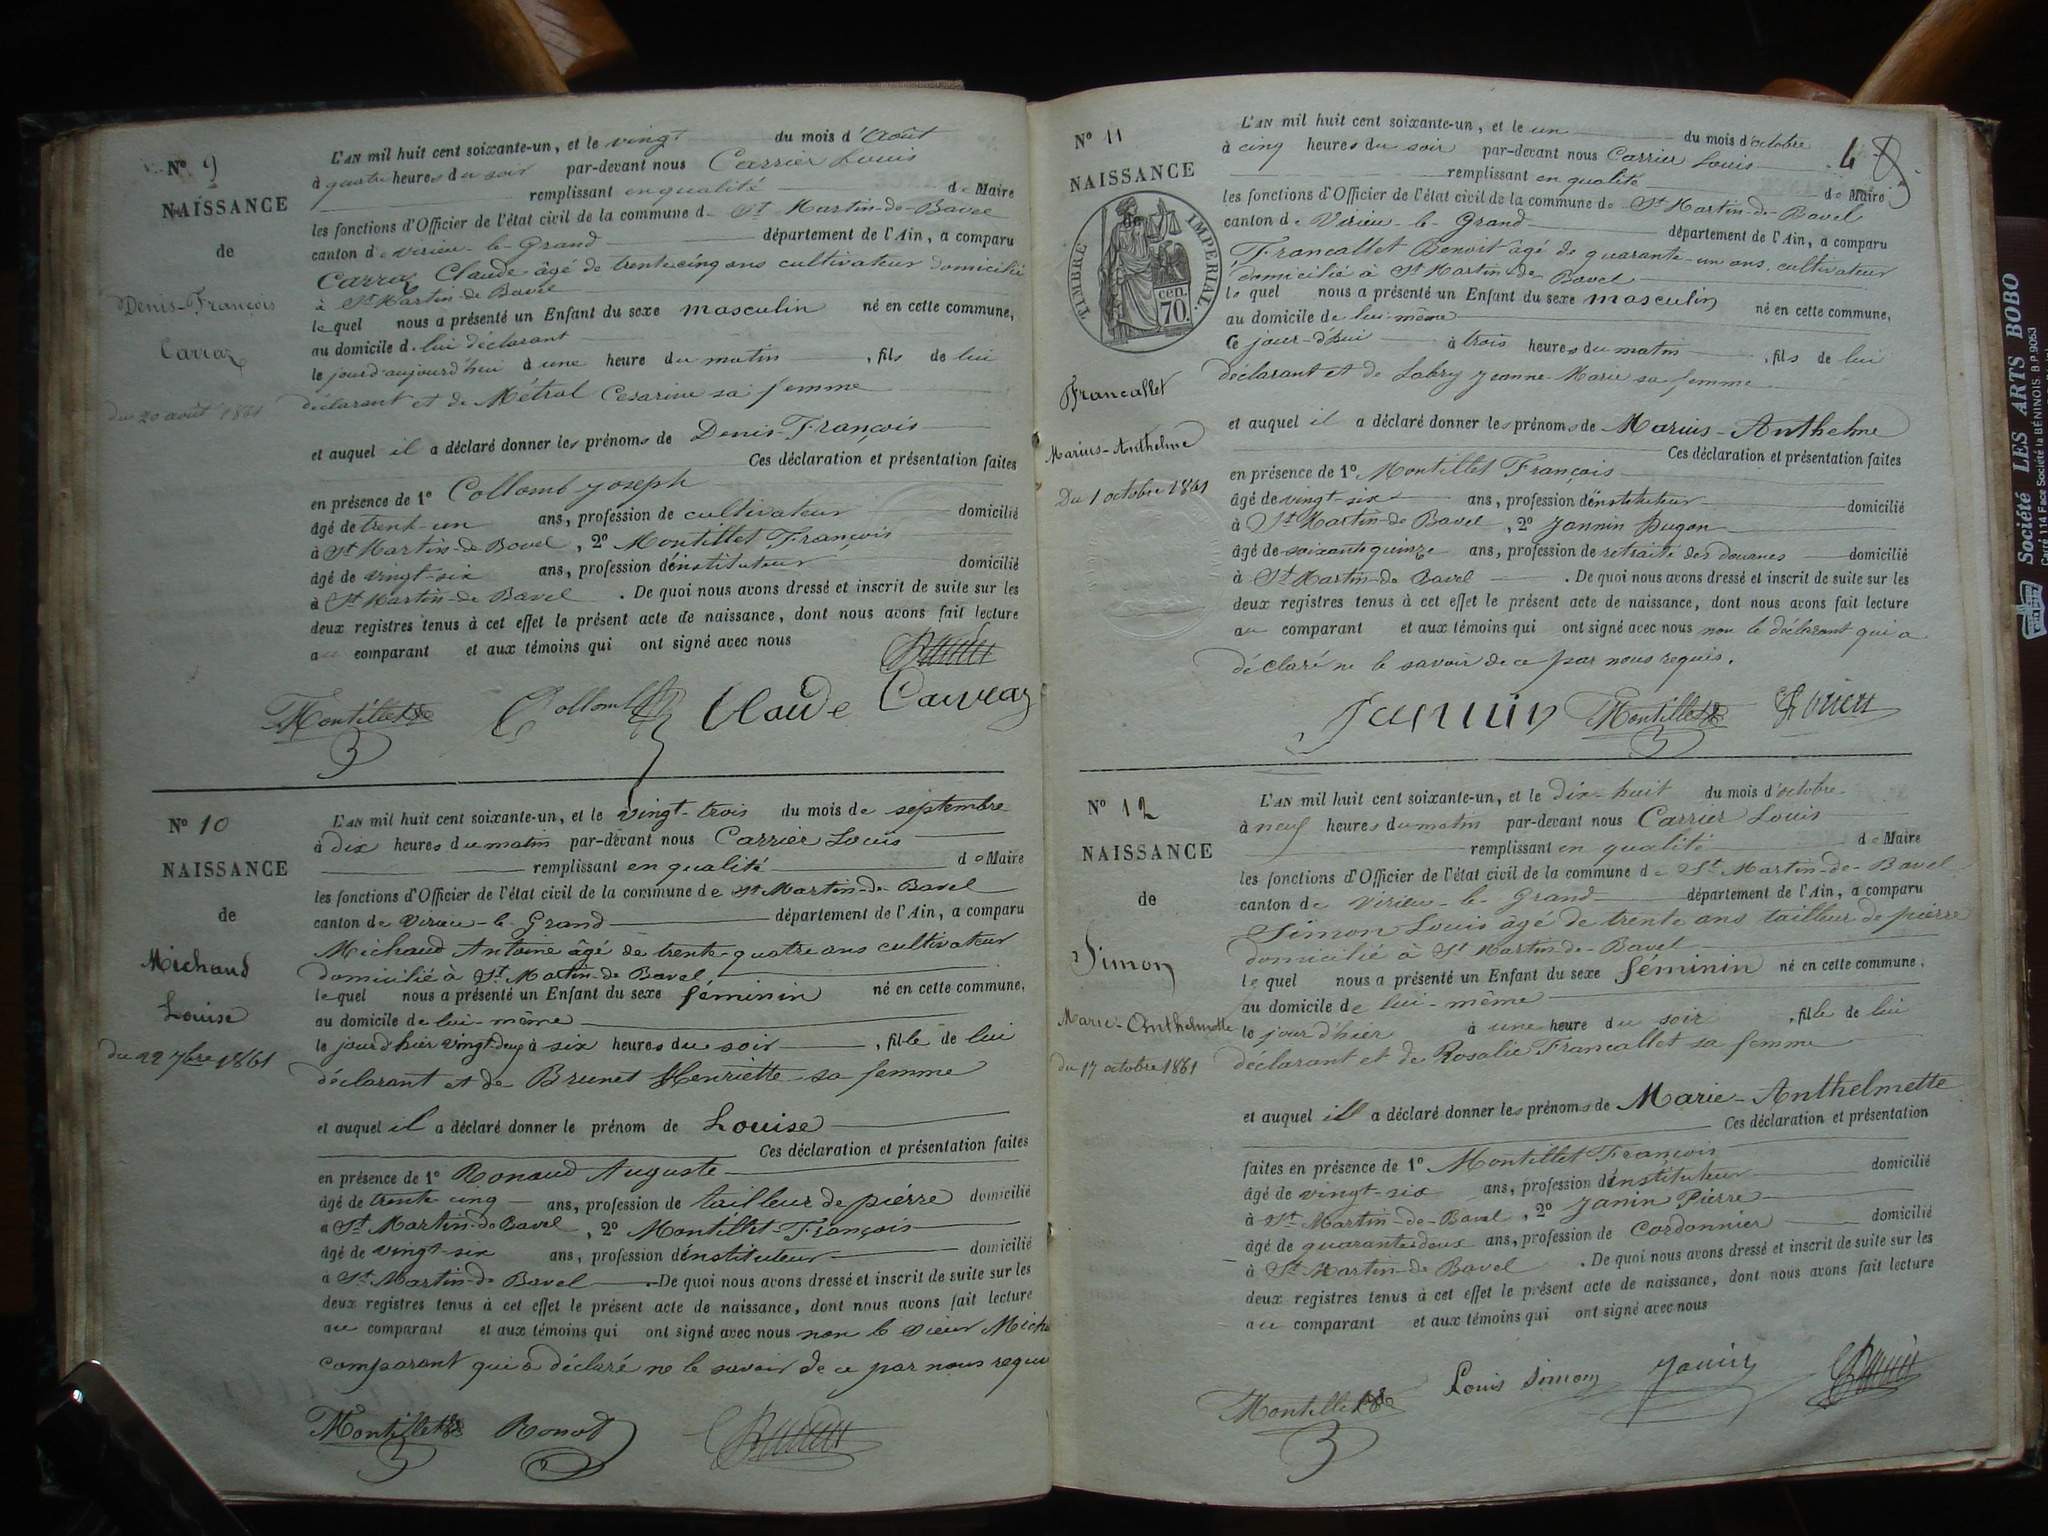 N° 9
NAISSANCE
de
Denis-François
Carraz
du 20 août 1861
L'AN mil huit cent soixante-un, et le vingt du mois d'Août
à quatre heures du soir par-devant nous Carrier Louis
remplissant en qualité de Maire
les fonctions d'Officier de l'état civil de la commune de St Martin-de-Bavel
canton de Virieu-le-Grand département de l'Ain, a comparu
Carraz Claude âgé de trente cinq ans cultivateur domicilié
à St Martin-de Bavel
le quel nous a présenté un Enfant du sexe masculin né en cette commune,
au domicile de lui déclarant
le jour d'aujourd'hui à une heure du matin, fils de lui
déclarant et de Métral Cesarine sa femme
et auquel il a déclaré donner les prénoms de Denis-François
Ces déclaration et présentation faites
en présence de 1° Collomb Joseph
âgé de trent-un ans, profession de cultivateur domicilié
à St Martin-de Bavel, 2° Montillet François
âgé de vingt-six ans, profession d'instituteur domicilié
à St Martin-de Bavel. De quoi nous avons dressé et inscrit de suite sur les
deux registres tenus à cet effet le présent acte de naissance, dont nous avons fait lecture
au comparant et aux témoins qui ont signé avec nous
Montillet Collomb Claude Carraz
N° 10
NAISSANCE
de
Michaud
Louise
du 22 7bre 1861
L'AN mil huit cent soixante-un, et le vingt-trois du mois de septembre
à dix heures du matin par-devant nous Carrier Louis
remplissant en qualité de Maire
les fonctions d'Officier de l'état civil de la commune de St Martin-de-Bavel
canton de Virieu-le-Grand département de l'Ain, a comparu
Michaud Antoine âgé de trente-quatre ans cultivateur
domicilié à St Martin-de Bavel
le quel nous a présenté un Enfant du sexe féminin né en cette commune,
au domicile de lui-même
le jour d'hier vingt-deux à six heures du soir, fille de lui
déclarant et de Brunet Henriette sa femme
et auquel il a déclaré donner le prénom de Louise
Ces déclaration et présentation faites
en présence de 1° Ronaud Auguste
âgé de trente cinq ans, profession de tailleur de pierre domicilié
à St Martin-de Bavel, 2° Montillet François
âgé de vingt-six ans, profession d'instituteur domicilié
à St Martin-de Bavel. De quoi nous avons dressé et inscrit de suite sur les
deux registres tenus à cet effet le présent acte de naissance, dont nous avons fait lecture
au comparant et aux témoins qui ont signé avec nous non le sieur Micha
comparant qui a déclaré ne le savoir de ce par nous requis
Montillet Ronod
N° 11
NAISSANCE
de
TIMBRE IMPERIAL.
cen.
70.
Francallet
Marius-Anthelme
Du 1 octobre 1861
L'AN mil huit cent soixante-un, et le un du mois d'octobre
à cinq heures du soir par-devant nous Carrier Louis
remplissant en qualité de Maire
les fonctions d'Officier de l'état civil de la commune de St Martin-de-Bavel
canton de Virieu-le-Grand département de l'Ain, a comparu
Francallet Benoit âgé de quarante-un ans, cultivateur
domicilié à St Martin de Bavel
le quel nous a présenté un Enfant du sexe masculin né en cette commune,
au domicile de lui-même
Ce jour-d'hui à trois heures du matin, fils de lui
déclarant et de Labry Jeanne-Marie sa femme
et auquel il a déclaré donner les prénoms de Marius-Anthelme
Ces déclaration et présentation faites
en présence de 1° Montillet François
âgé de vingt-six ans, profession d'instituteur domicilié
à St Martin-de Bavel, 2° Jannin Dugon
âgé de soixante quinze ans, profession de retraité des douanes domicilié
à St Martin-de Bavel. De quoi nous avons dressé et inscrit de suite sur les
deux registres tenus à cet effet le présent acte de naissance, dont nous avons fait lecture
au comparant et aux témoins qui ont signé avec nous non le déclarant qui a
déclaré ne le savoir de ce par nous requis.
Jannin Montillet
N° 12
NAISSANCE
de
Simon
Marie-Anthelmette
du 17 octobre 1861
L'AN mil huit cent soixante-un, et le dix-huit du mois d'octobre
à neuf heures du matin par-devant nous Carrier Louis
remplissant en qualité de Maire
les fonctions d'Officier de l'état civil de la commune de St Martin-de-Bavel
canton de Virieu-le-Grand département de l'Ain, a comparu
Simon Louis âgé de trente ans tailleur de pierre
domicilié à St Martin-de-Bavel
le quel nous a présenté un Enfant du sexe féminin né en cette commune,
au domicile de lui-même
le jour d'hier à une heure du soir, fille de lui
déclarant et de Rosalie Francallet sa femme
et auquel il a déclaré donner les prénoms de Marie-Anthelmette
Ces déclaration et présentation
faites en présence de 1° Montillet François
âgé de vingt-six ans, profession d'instituteur domicilié
à St Martin-de-Bavel, 2° Janin Pierre
âgé de quarante-deux ans, profession de Cordonnier domicilié
à St Martin-de Bavel. De quoi nous avons dressé et inscrit de suite sur les
deux registres tenus à cet effet le présent acte de naissance, dont nous avons fait lecture
au comparant et aux témoins qui ont signé avec nous
Montillet Louis Simon Janin
Société LES ARTS BOBO